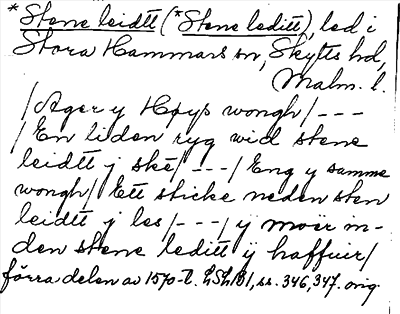 *Stene leidtt (*Stene leditt), led i
Stora Hammars sn, Skytts hd,
Malm. l.
/Ager y Høys wongh/---
/En liden ryg wid stene
leidtt j skè/---/Eng y samme
wongh/ Ett sticke neden sten
leidtt j les/---/ÿ moer in-
den stene leditt ÿ haffuir/
förra delen av 1570-t. LSLB1, ss. 346, 347. orig.